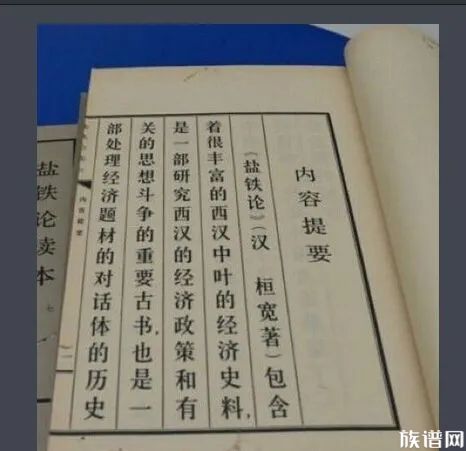 内容提要
《盐铁论》（汉 桓宽著）包含
着很丰富的西汉中叶的经济史料，
是一部研究西汉的经济政策和有
关的思想斗争的重要古书，也是一
部处理经济题材的对话体的历史
内容提要
一
盐铁论读本
七
族谱网